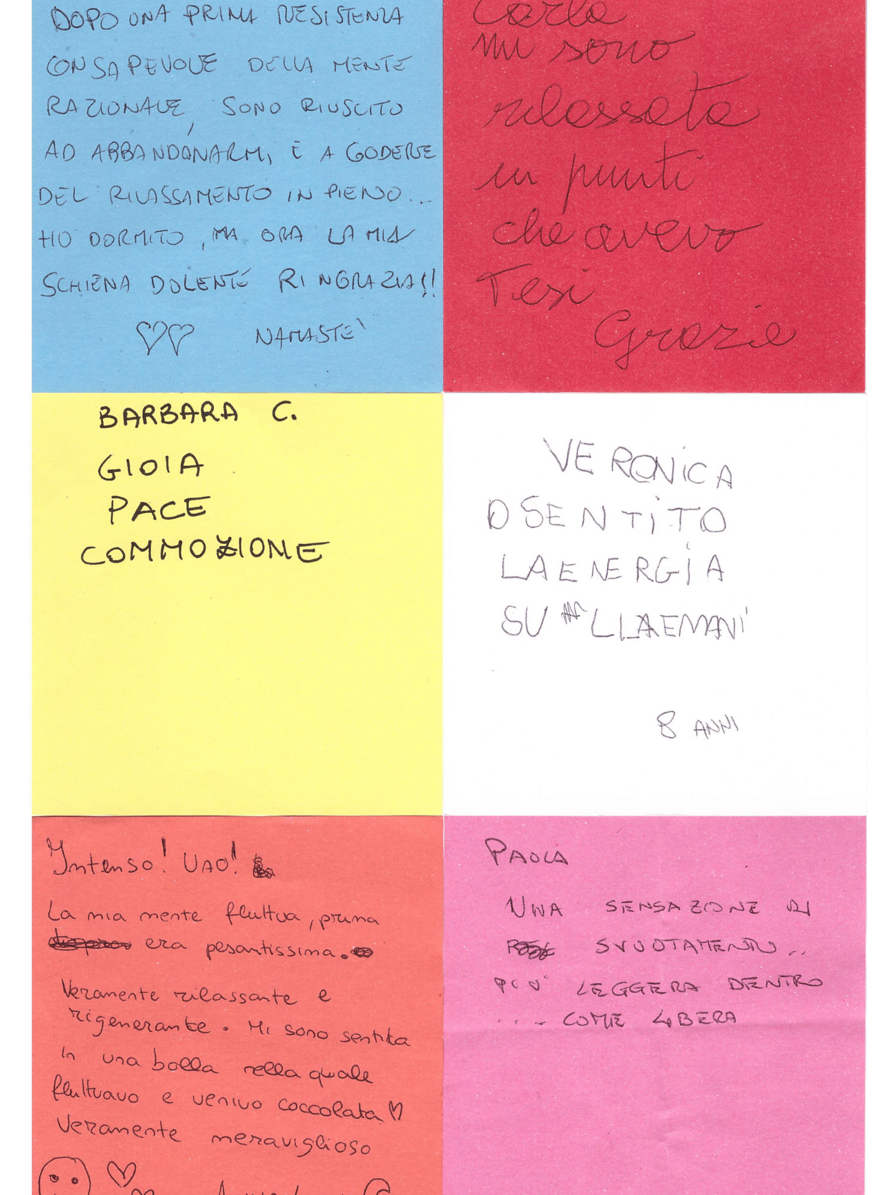 DOPO UNA PRIMA RESISTENZA
CONSAPEVOLE DELLA MENTE
RAZIONALE, SONO RIUSCITO
AD ABBANDONARMI, E A GODERE
DEL RILASSAMENTO IN PIENO...
HO DORMITO, MA ORA LA MIA
SCHIENA DOLENTE RINGRAZIA!!
♡♡ NAMASTE'
Carla
mi sono
rilassata
in punti
che avevo
Tesi
Grazie
BARBARA C.
GIOIA
PACE
COMMOZIONE
VERONICA
O SENTITO
LAENERGIA
SU LLAEMANI
8 ANNI
Intenso! UAO!
La mia mente fluttua, prima
era pesantissima.
Veramente rilassante e
rigenerante. Mi sono sentita
in una bolla nella quale
fluttuavo e venivo coccolata ♡
Veramente meraviglioso
PAOLA
UNA SENSAZIONE DI
SVUOTAMENTO..
PIU' LEGGERA DENTRO
.... COME LIBERA